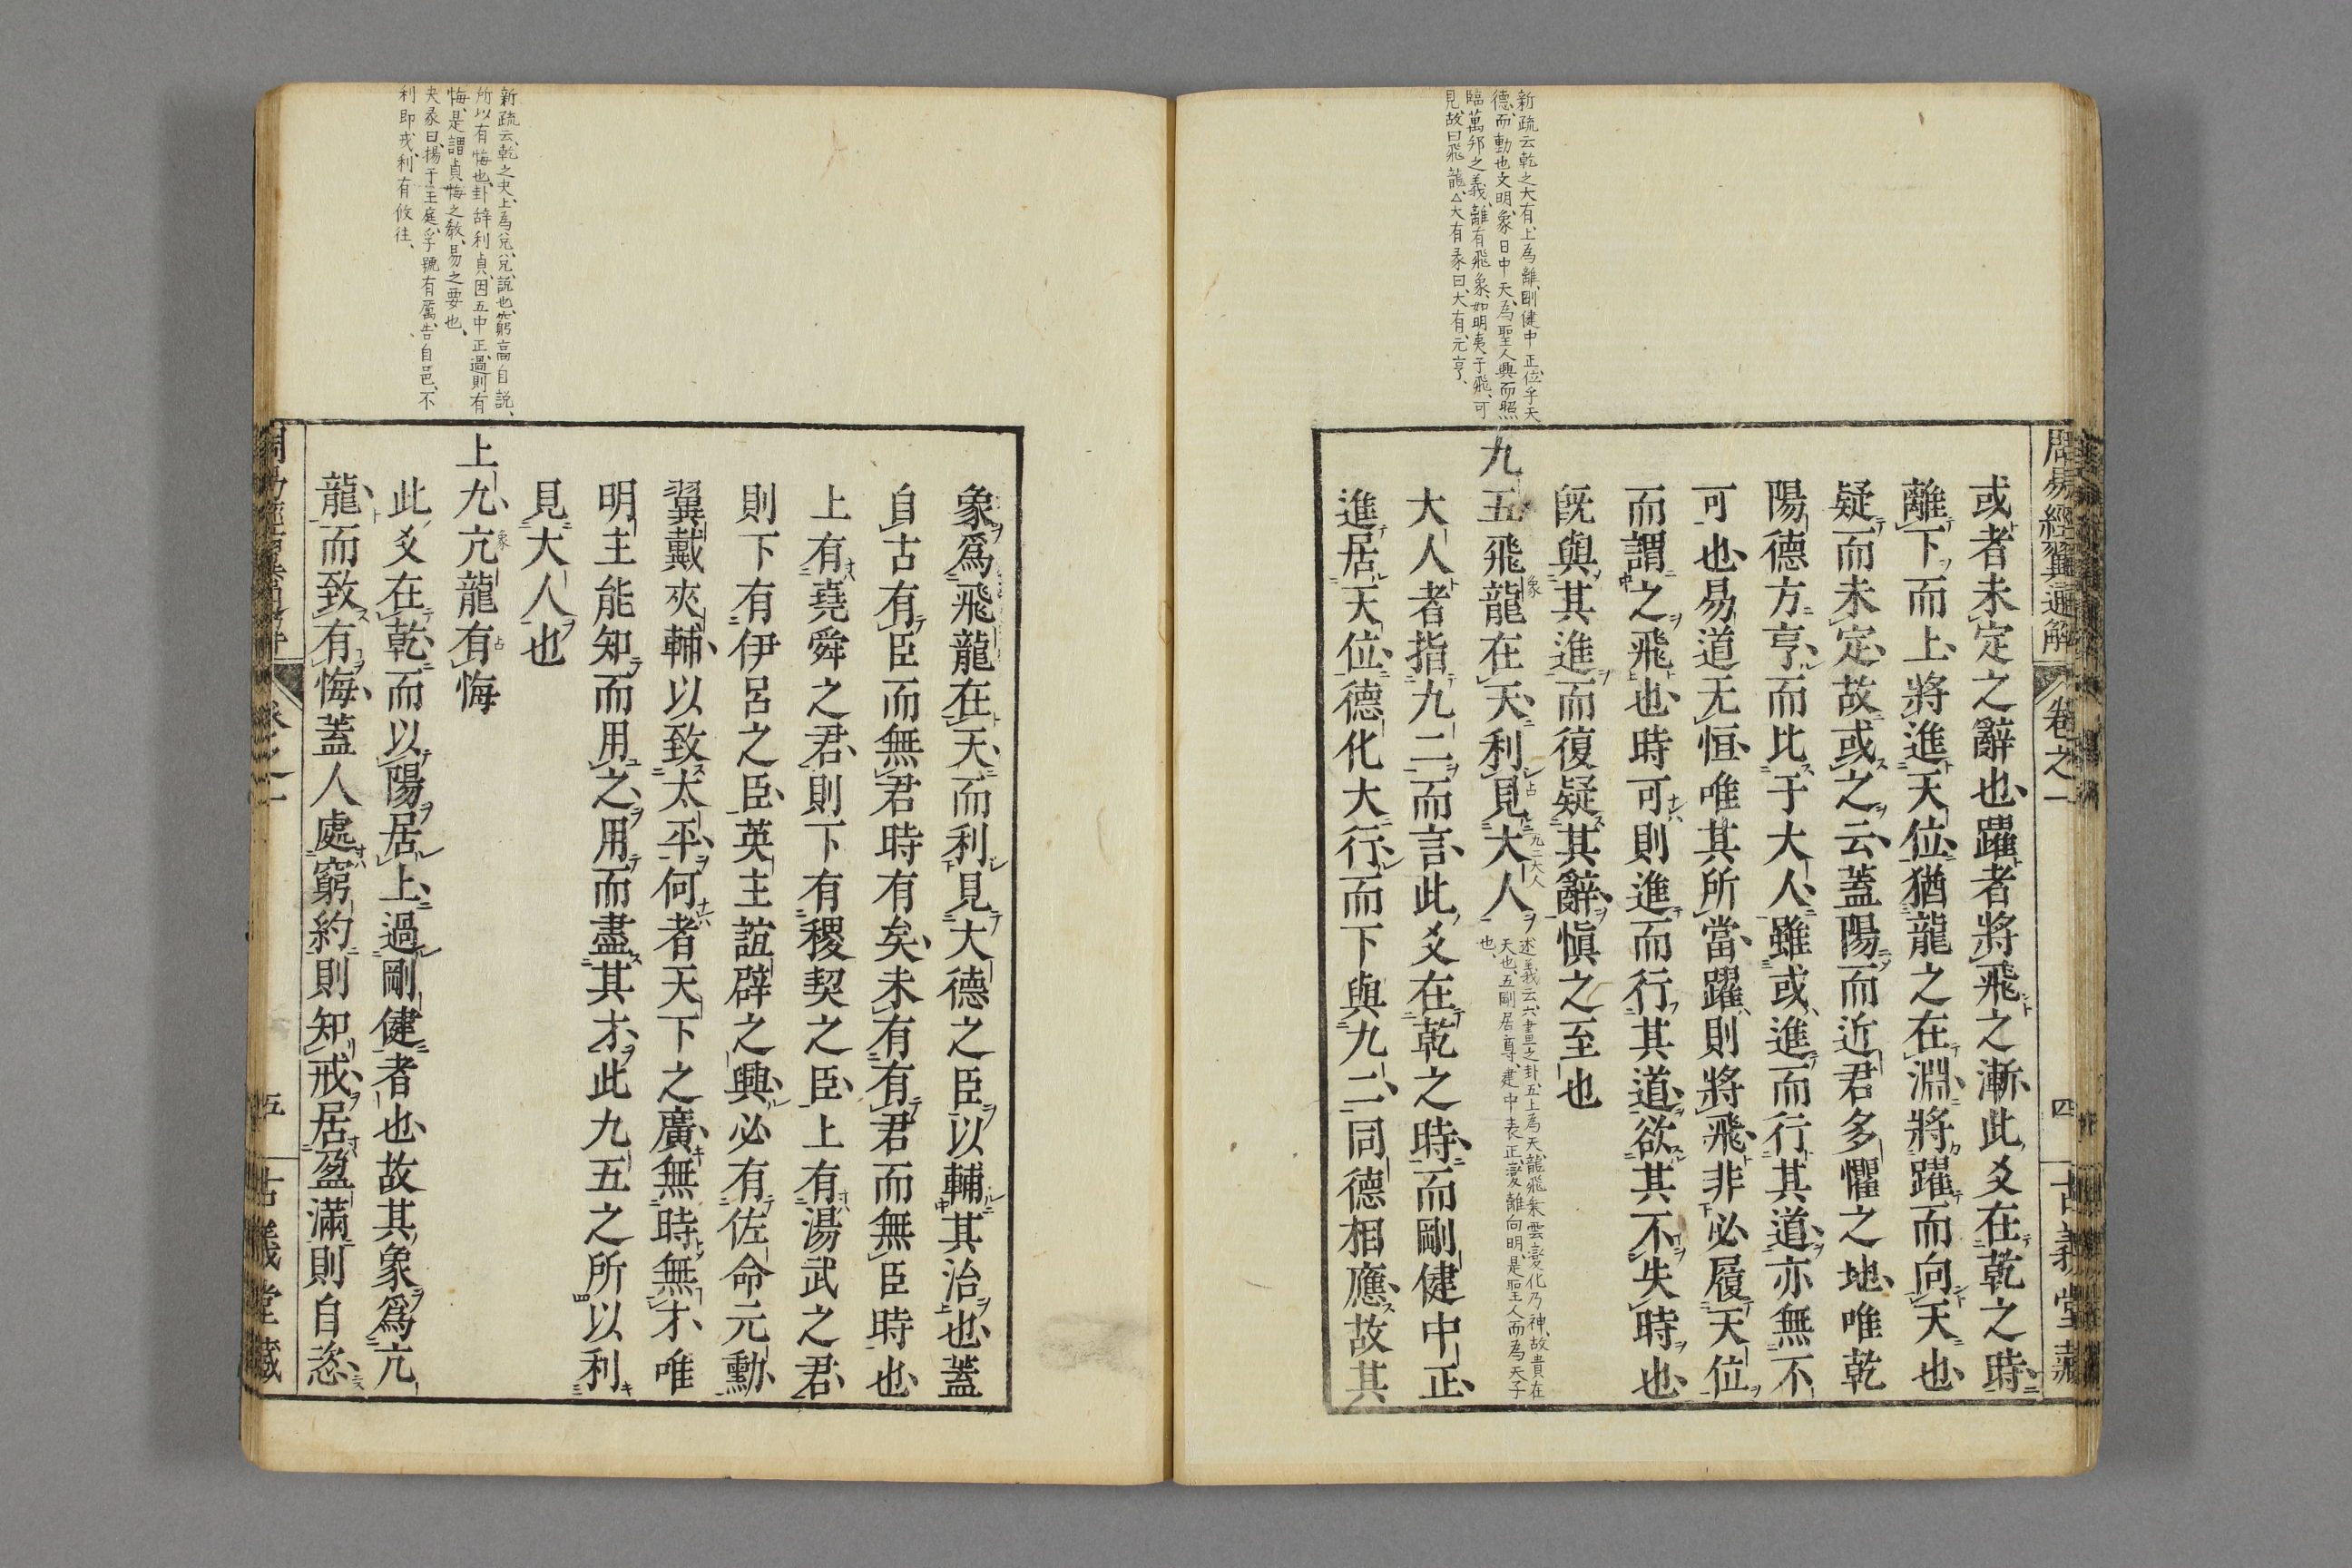 周易經翼通解
卷之一
四
古義堂藏
新疏云乾之大有、上為離、剛健中正、位乎天
德、而動也文明、象日中天、為聖人興而照
臨萬邦之義、離有飛象、如明夷于飛、可
見、故曰飛龍、△大有彖曰、大有、元亨、
或者未定之辭也躍者將飛之漸此爻在乾之時
離下而上將進天位猶龍之在淵將躍而向天也
疑而未定故或之云蓋陽而近君多懼之地唯乾
陽德方亨而比于大人雖或進而行其道亦無不
可也易道无恒唯其所當躍則將飛非必履天位
而謂之飛也時可則進而行其道欲其不失時也
既與其進而復疑其辭愼之至也
九五飛龍在天利見大人
象
占
九二大人
述義云六畫之卦五上為天、龍飛乗雲、變化乃神、故貴在
天也、五剛居尊、建中表正、變離向明、是聖人而為天子
也、
大人者指九二而言此爻在乾之時而剛健中正
進居天位德化大行而下與九二同德相應故其
新疏云、乾之夬、上為兌、兌、説也、窮高自説、
所以有悔也、卦辞利貞、因五中正、過則有
悔、是謂貞悔之教、易之要也、
夬彖曰、揚于王庭、孚號有厲、告自邑、不
利即戎、利有攸往、
象爲飛龍在天而利見大德之臣以輔其治也蓋
自古有臣而無君時有矣未有有君而無臣時也
上有堯舜之君則下有稷契之臣上有湯武之君
則下有伊呂之臣英主誼辟之興必有佐命元勳
翼戴夾輔以致太平何者天下之廣無時無才唯
明主能知而用之用而盡其才此九五之所以利
見大人也
上九亢龍有悔
象
占
此爻在乾而以陽居上過剛健者也故其象爲亢
龍而致有悔蓋人處窮約則知戒居盈滿則自恣
卷之一
五
古義堂藏